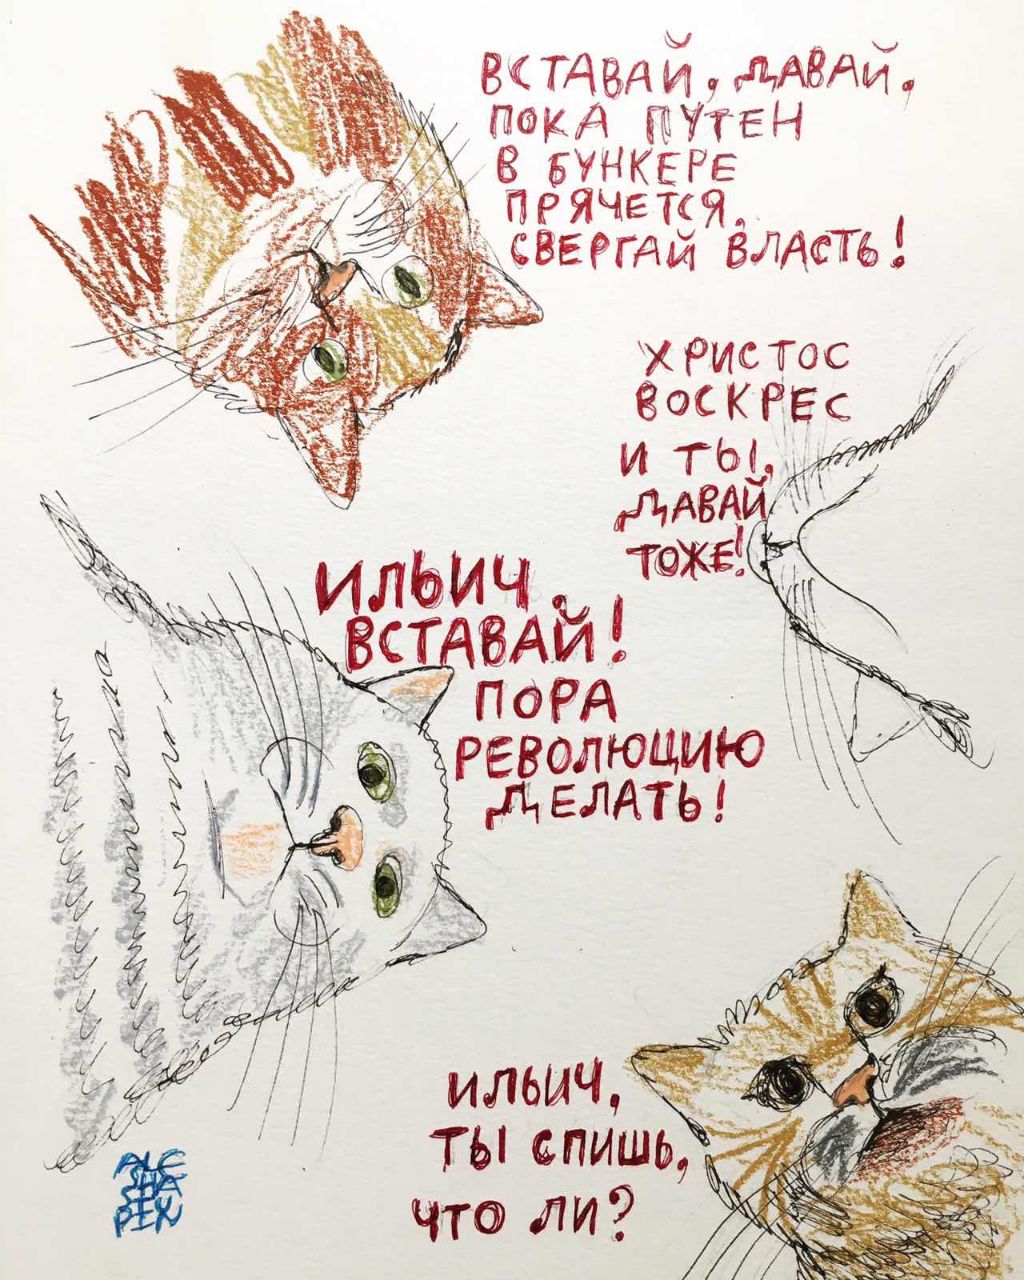 ВСТАВАЙ, ДАВАЙ,
ПОКА ПУТЕН
В БУНКЕРЕ
ПРЯЧЕТСЯ.
СВЕРГАЙ ВЛАСТЬ!
ХРИСТОС
ВОСКРЕС
И ТЫ,
ДАВАЙ
ТОЖЕ!
ИЛЬИЧ,
ВСТАВАЙ!
ПОРА
РЕВОЛЮЦИЮ
ДЕЛАТЬ!
ИЛЬИЧ,
ТЫ СПИШЬ,
ЧТО ЛИ?